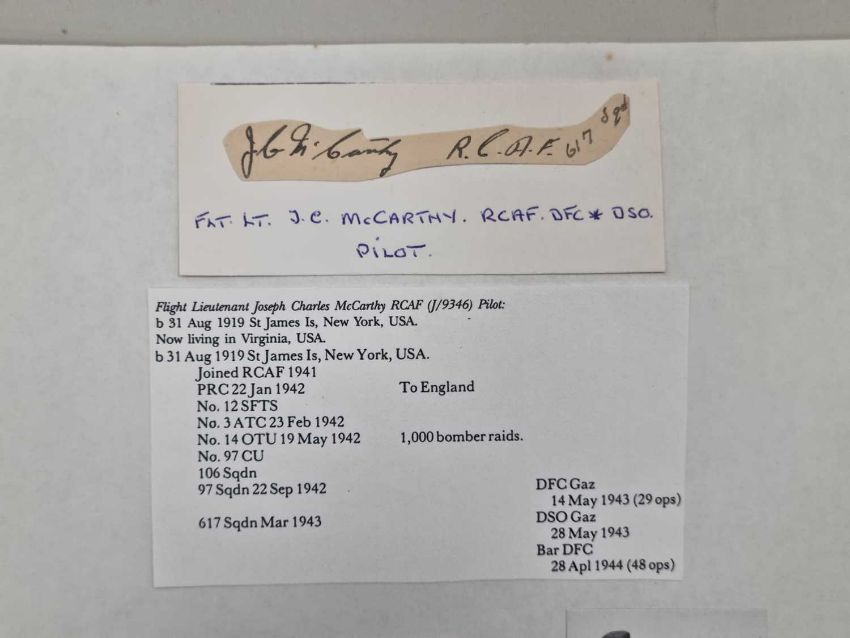 J C McCarthy R.C.A.F. 617 Sqd
FLT. LT. J.C. McCARTHY. RCAF. DFC* DSO.
PILOT.
Flight Lieutenant Joseph Charles McCarthy RCAF (J/9346) Pilot:
b 31 Aug 1919 St James Is, New York, USA.
Now living in Virginia, USA.
b 31 Aug 1919 St James Is, New York, USA.
Joined RCAF 1941
PRC 22 Jan 1942 To England
No. 12 SFTS
No. 3 ATC 23 Feb 1942
No. 14 OTU 19 May 1942 1,000 bomber raids.
No. 97 CU
106 Sqdn
97 Sqdn 22 Sep 1942 DFC Gaz
14 May 1943 (29 ops)
617 Sqdn Mar 1943 DSO Gaz
28 May 1943
Bar DFC
28 Apl 1944 (48 ops)